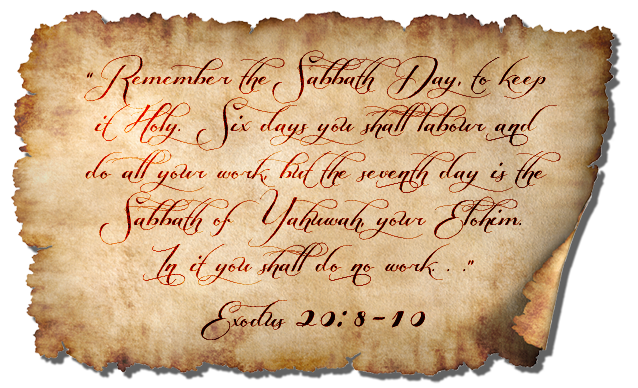 "Remember the Sabbath Day, to keep
it Holy. Six days you shall labour and
do all your work, but the seventh day is the
Sabbath of Yahuwah, your Elohim.
In it you shall do no work. . ."
Exodus 20:8-10